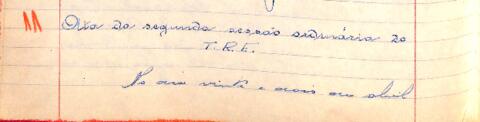 11 Ata da segunda sessão ordinária do
T.R.E.
No dia vinte e dois de abril